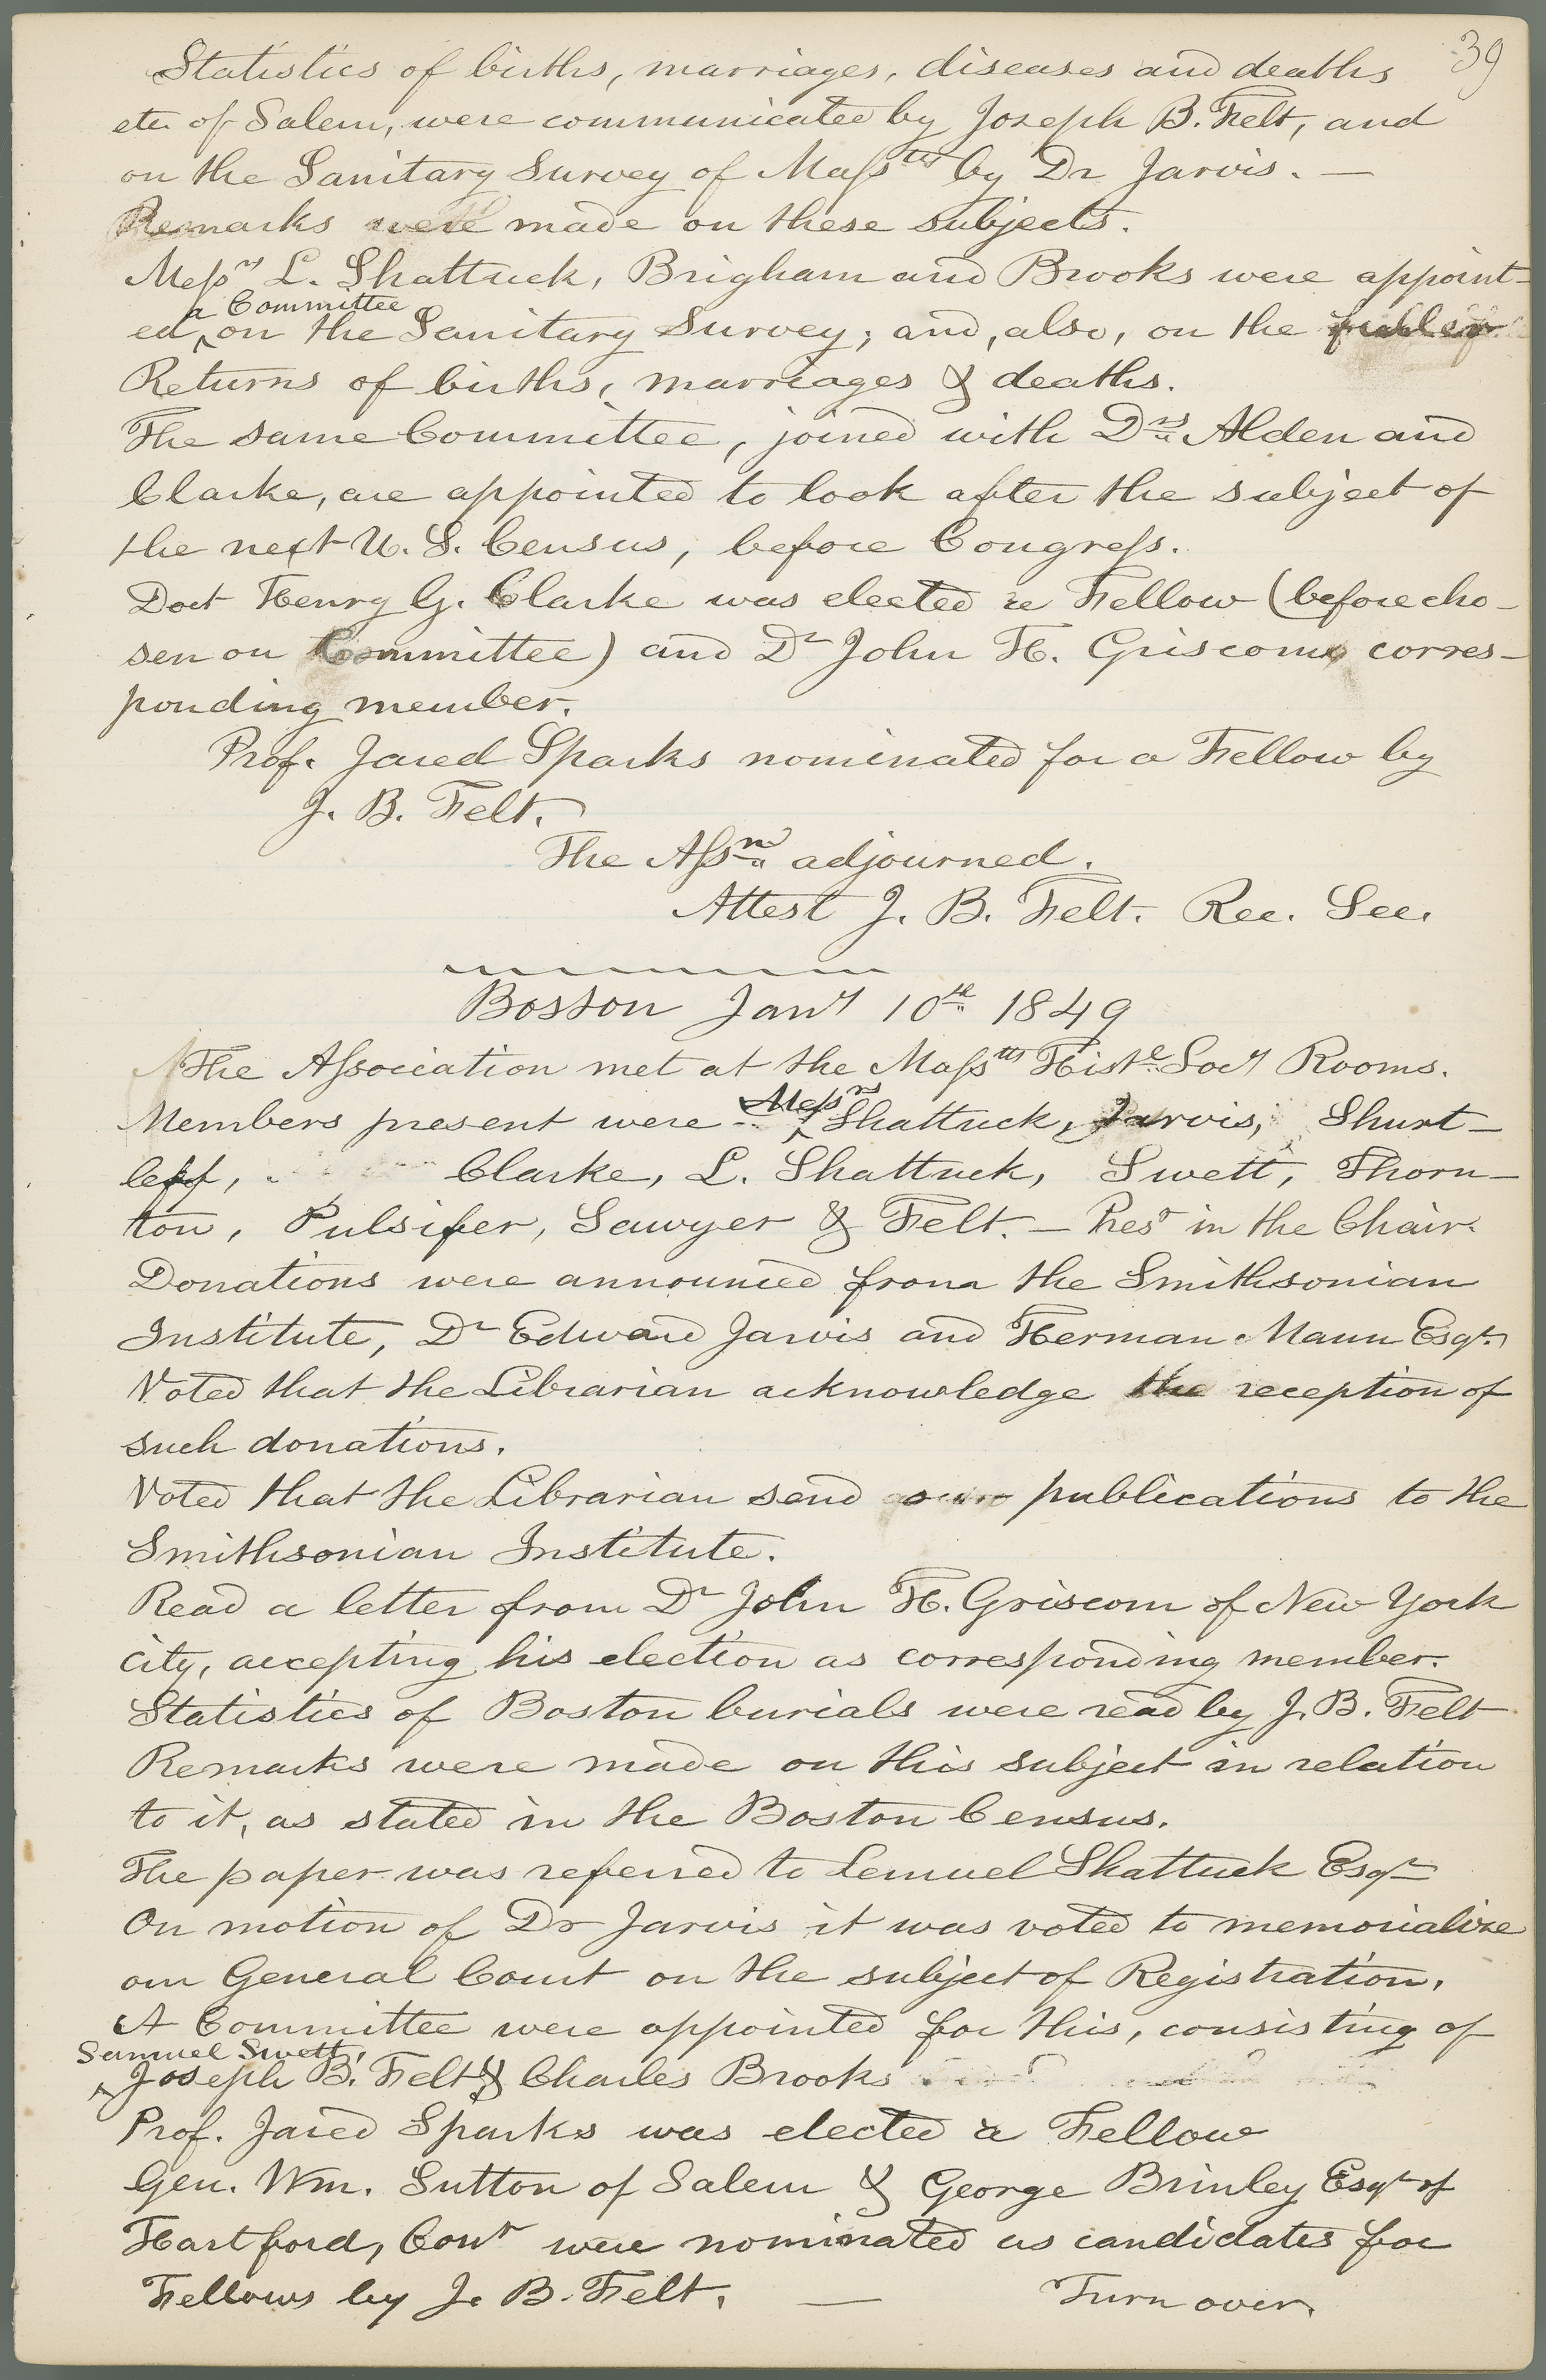 39
Statistics of births, marriages, diseases and deaths
etc of Salem, were communicated by Joseph B. Felt, and
on the Sanitary Survey of Masstts by Dr Jarvis. —
Remarks were made on these subjects.
Messrs L. Shattuck, Brigham and Brooks were appoint-
a Committee
ed, on the Sanitary Survey; and, also, on the
Returns of births, marriages & deaths.
The same Committee, joined with Drs Alden and
Clarke, are appointed to look after the subject of
the next U. S. Census, before Congress.
Doct Henry G. Clarke was elected a Fellow (before cho-
sen on Committee) and Dr John H. Griscom corres-
ponding member.
Prof. Jared Sparks nominated for a Fellow by
J. B. Felt.
The Assn adjourned.
Attest J. B. Felt. Rec. Sec.
Boston Jany 10th 1849
The Association met at the Masstts Histl Socy Rooms.
Messrs
Members present were Shattuck, Jarvis, Shurt-
leff, Clarke, L. Shattuck, Swett, Thorn-
ton, Pulsifer, Sawyer & Felt. — Prest in the Chair.
Donations were announced from the Smithsonian
Institute, Dr Edward Jarvis and Herman Mann Esqr.
Voted that the Librarian acknowledge the reception of
such donations.
Voted that the Librarian send our publications to the
Smithsonian Institute.
Read a letter from Dr John H. Griscom of New York
city, accepting his election as corresponding member.
Statistics of Boston burials were read by J. B. Felt
Remarks were made on this subject in relation
to it, as stated in the Boston Census.
The paper was referred to Lemuel Shattuck Esqr
On motion of Dr Jarvis it was voted to memorialize
our General Court on the subject of Registration.
A Committee were appointed for this, consisting of
Samuel Swett,
Joseph B. Felt & Charles Brooks
Prof. Jared Sparks was elected a Fellow
Gen. Wm. Sutton of Salem & George Brinley Esqr of
Hartford, Cont were nominated as candidates for
Fellows by J. B. Felt. —
Turn over.